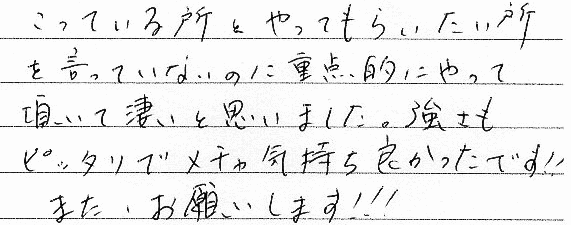 こっている所とやってもらいたい所
を言っていないのに重点的にやって
頂いて凄いと思いました。強さも
ピッタリでメチャ気持ち良かったです!!
また、お願いします!!!